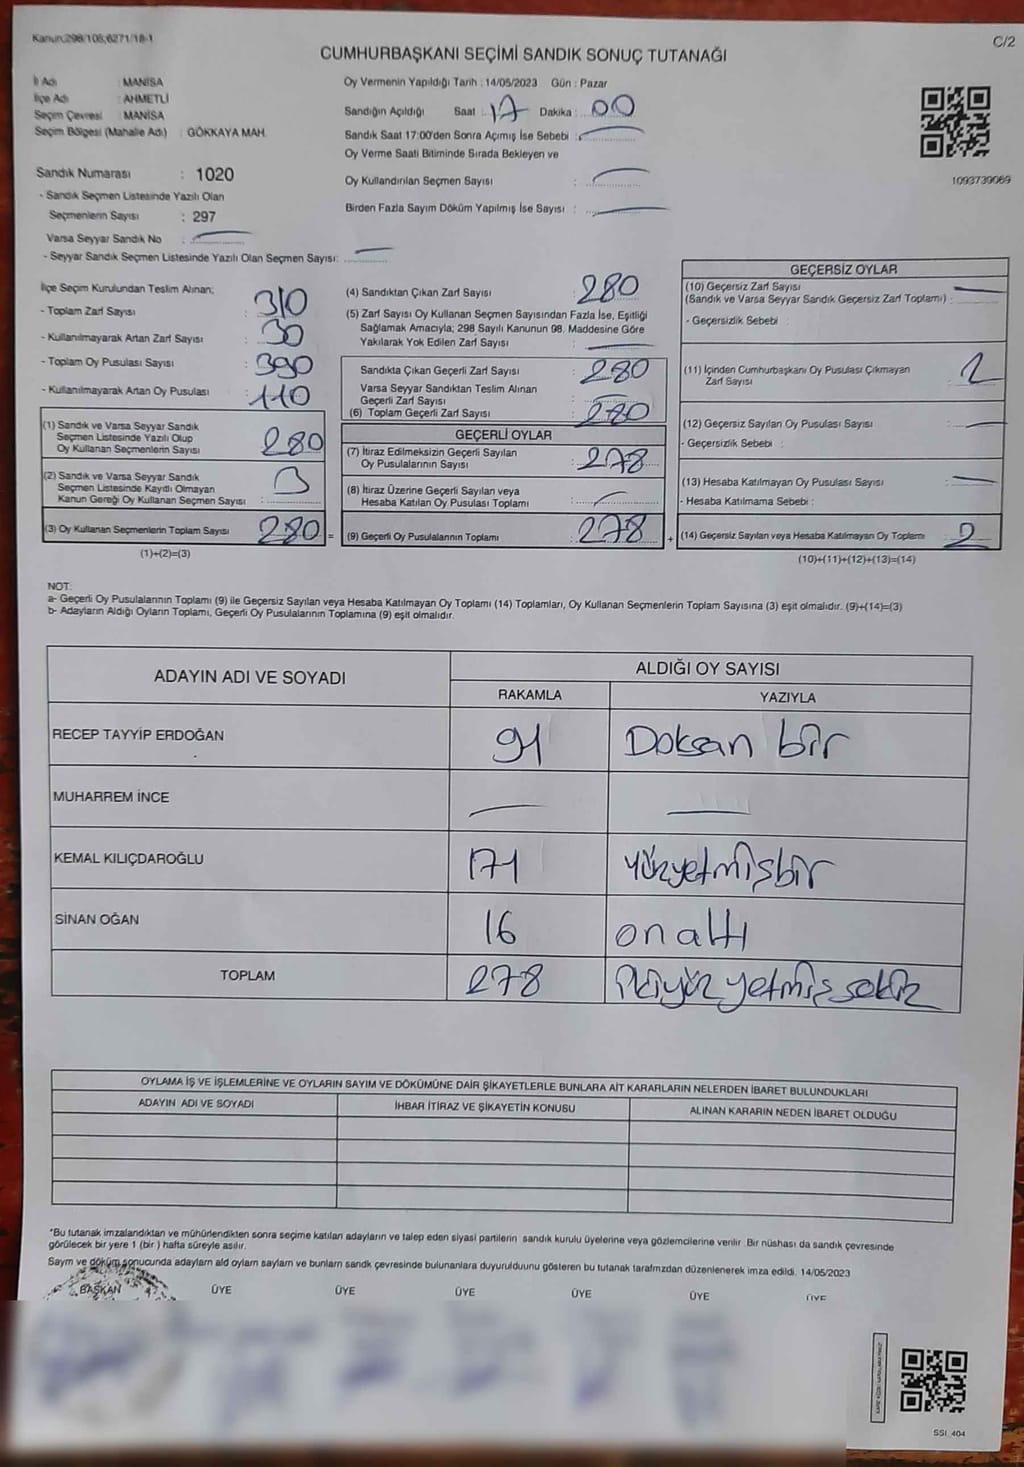 Kanun:298/108;6271/18-1
C/2
CUMHURBAŞKANI SEÇİMİ SANDIK SONUÇ TUTANAĞI
İl Adı : MANİSA
İlçe Adı : AHMETLİ
Seçim Çevresi : MANİSA
Seçim Bölgesi (Mahalle Adı) : GÖKKAYA MAH.
Sandık Numarası : 1020
- Sandık Seçmen Listesinde Yazılı Olan
Seçmenlerin Sayısı : 297
Varsa Seyyar Sandık No :
- Seyyar Sandık Seçmen Listesinde Yazılı Olan Seçmen Sayısı:
Oy Vermenin Yapıldığı Tarih : 14/05/2023 Gün : Pazar
Sandığın Açıldığı Saat : 17 Dakika : 00
Sandık Saat 17:00'den Sonra Açımış İse Sebebi :
Oy Verme Saati Bitiminde Sırada Bekleyen ve
Oy Kullandırılan Seçmen Sayısı :
Birden Fazla Sayım Döküm Yapılmış İse Sayısı :
1093739069
İlçe Seçim Kurulundan Teslim Alınan;
- Toplam Zarf Sayısı : 310
- Kullanılmayarak Artan Zarf Sayısı : 30
- Toplam Oy Pusulası Sayısı : 390
- Kullanılmayarak Artan Oy Pusulası : 110
(1) Sandık ve Varsa Seyyar Sandık
Seçmen Listesinde Yazılı Olup
Oy Kullanan Seçmenlerin Sayısı : 280
(2) Sandık ve Varsa Seyyar Sandık
Seçmen Listesinde Kayıtlı Olmayan
Kanun Gereği Oy Kullanan Seçmen Sayısı : 3
(3) Oy Kullanan Seçmenlerin Toplam Sayısı : 280 =
(1)+(2)=(3)
(4) Sandıktan Çıkan Zarf Sayısı : 280
(5) Zarf Sayısı Oy Kullanan Seçmen Sayısından Fazla İse, Eşitliği
Sağlamak Amacıyla; 298 Sayılı Kanunun 98. Maddesine Göre
Yakılarak Yok Edilen Zarf Sayısı :
Sandıkta Çıkan Geçerli Zarf Sayısı : 280
Varsa Seyyar Sandıktan Teslim Alınan
Geçerli Zarf Sayısı :
(6) Toplam Geçerli Zarf Sayısı : 280
GEÇERLİ OYLAR
(7) İtiraz Edilmeksizin Geçerli Sayılan
Oy Pusulalarının Sayısı : 278
(8) İtiraz Üzerine Geçerli Sayılan veya
Hesaba Katılan Oy Pusulası Toplamı :
(9) Geçerli Oy Pusulalarının Toplamı : 278 +
GEÇERSİZ OYLAR
(10) Geçersiz Zarf Sayısı
(Sandık ve Varsa Seyyar Sandık Geçersiz Zarf Toplamı) :
- Geçersizlik Sebebi :
(11) İçinden Cumhurbaşkanı Oy Pusulası Çıkmayan
Zarf Sayısı : 2
(12) Geçersiz Sayılan Oy Pusulası Sayısı :
- Geçersizlik Sebebi :
(13) Hesaba Katılmayan Oy Pusulası Sayısı :
- Hesaba Katılmama Sebebi :
(14) Geçersiz Sayılan veya Hesaba Katılmayan Oy Toplamı : 2
(10)+(11)+(12)+(13)=(14)
NOT:
a- Geçerli Oy Pusulalarının Toplamı (9) ile Geçersiz Sayılan veya Hesaba Katılmayan Oy Toplamı (14) Toplamları, Oy Kullanan Seçmenlerin Toplam Sayısına (3) eşit olmalıdır. (9)+(14)=(3)
b- Adayların Aldığı Oyların Toplamı, Geçerli Oy Pusulalarının Toplamına (9) eşit olmalıdır.
ADAYIN ADI VE SOYADI
ALDIĞI OY SAYISI
RAKAMLA YAZIYLA
RECEP TAYYİP ERDOĞAN 91 Doksan bir
MUHARREM İNCE
KEMAL KILIÇDAROĞLU 171 yüzyetmişbir
SİNAN OĞAN 16 on altı
TOPLAM 278 ikiyüz yetmiş sekiz
OYLAMA İŞ VE İŞLEMLERİNE VE OYLARIN SAYIM VE DÖKÜMÜNE DAİR ŞİKAYETLERLE BUNLARA AİT KARARLARIN NELERDEN İBARET BULUNDUKLARI
ADAYIN ADI VE SOYADI İHBAR İTİRAZ VE ŞİKAYETİN KONUSU ALINAN KARARIN NEDEN İBARET OLDUĞU
*Bu tutanak imzalandıktan ve mühürlendikten sonra seçime katılan adayların ve talep eden siyasi partilerin sandık kurulu üyelerine veya gözlemcilerine verilir. Bir nüshası da sandık çevresinde
görülecek bir yere 1 (bir ) hafta süreyle asılır.
Sayım ve döküm sonucunda adaylarn ald oylarn saylarn ve bunlarn sandk çevresinde bulunanlara duyurulduunu gösteren bu tutanak tarafmzdan düzenlenerek imza edildi. 14/05/2023
BAŞKAN ÜYE ÜYE ÜYE ÜYE ÜYE ÜYE
SSI_404